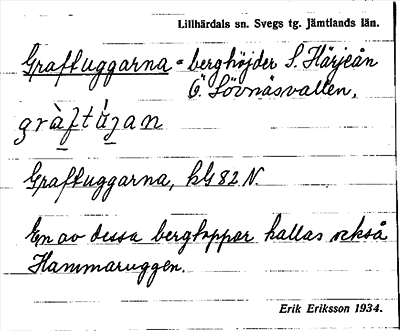 Lillhärdals sn. Svegs tg. Jämtlands län.
Graftuggarna = berghöjder S. Härjeån
Ö. Lövnäsvallen,
gràftùgan
Graftuggarna, kG 82 N.
En av dessa bergtoppar kallas också
Hammaruggen.
Erik Eriksson 1934.